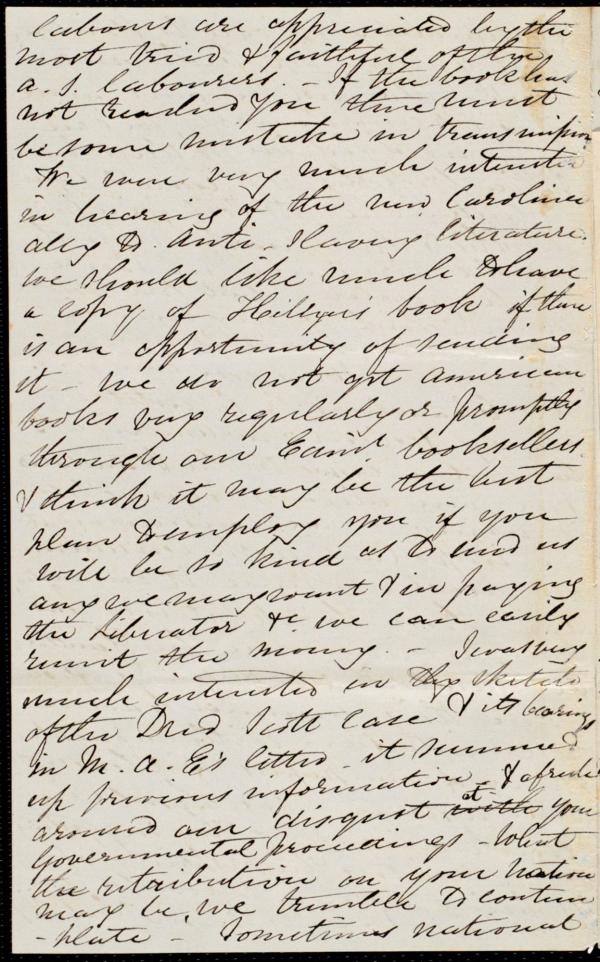 labours are appreciated by the
most tried & faithful of the
a. S. labourers. - If the book has
not reached you there must
be some mistake in transmission
We were very much interested
in hearing of the new Carolina
to Anti-Slavery literature.
we should like much to have
a copy of book if there
is an opportunity of sending
it - we do not get American
books very regularly or promptly
through our Edinr. booksellers
& think it may be the best
plan to employ you if you
will be so kind as to send us
any we may want & in paying
the Liberator &c we can easily
remit the money. - I was very
much interested in the sketch
of the Dred Scott Case & its bearings
in M. A. E's letter - it summed
up previous information - & afresh
aroused our disgust with at your
Governmental proceedings - What
the retribution on your nation
may be, we tremble to contem
-plate - Sometimes national